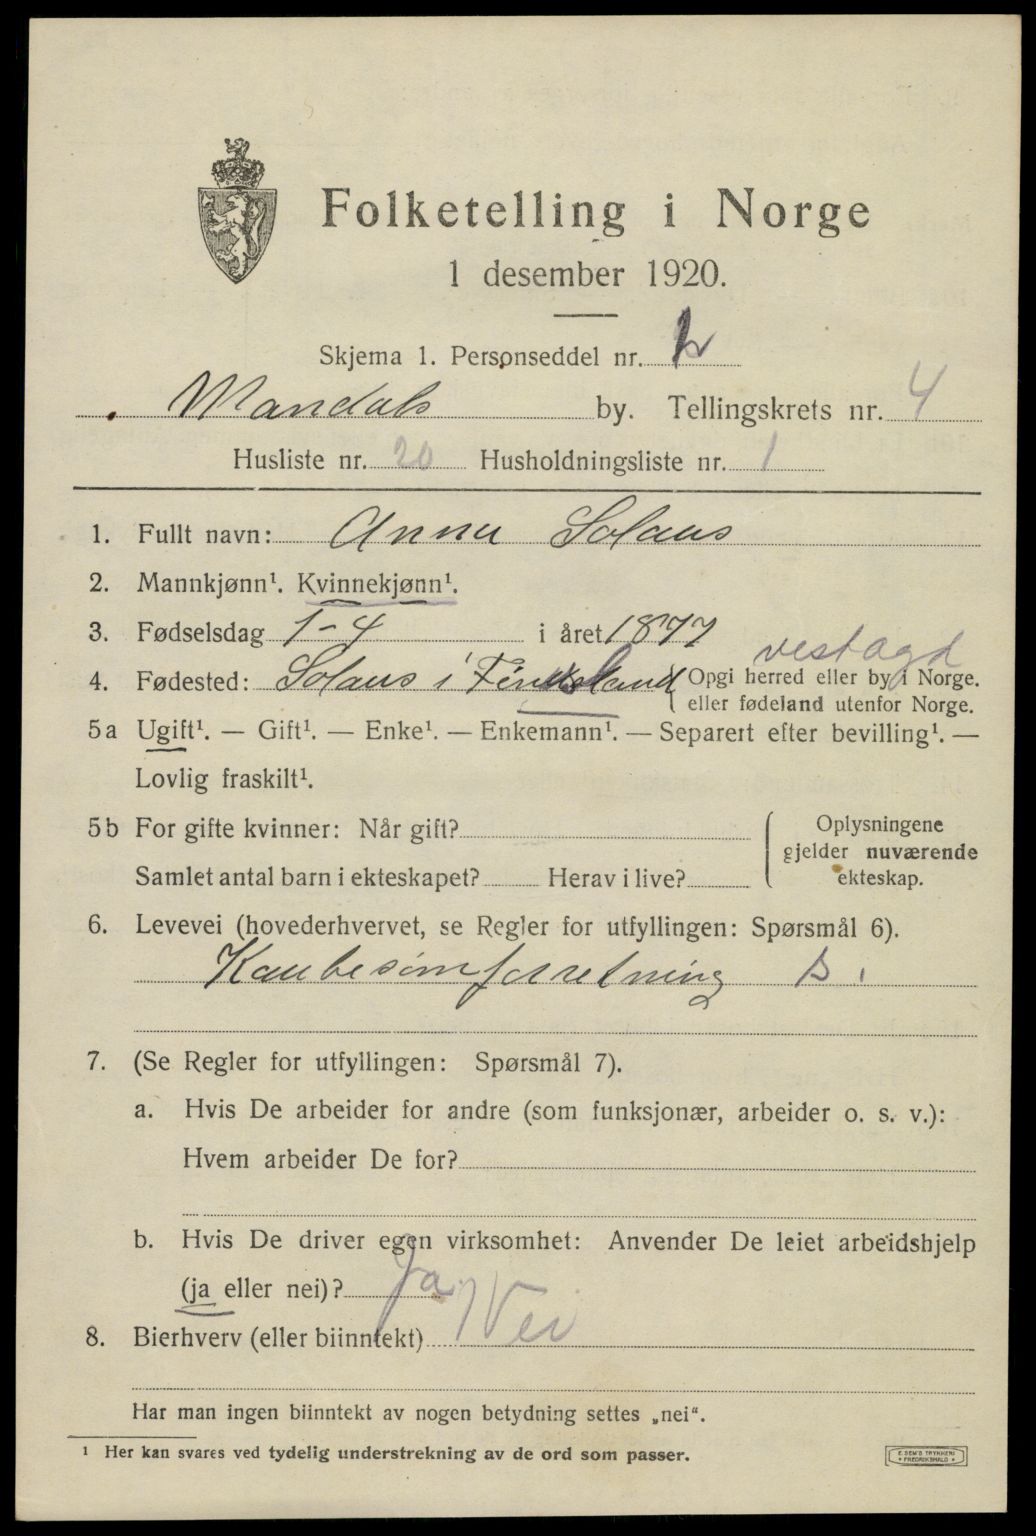 Folketelling i Norge
1 desember 1920.
Skjema 1. Personseddel nr.
Mandals by. Tellingskrets nr. 4
Husliste nr. 20 Husholdningsliste nr. 1
1. Fullt navn: Anna Solaas
2. Mannkjønn¹. Kvinnekjønn¹.
3. Fødselsdag 1-4 i året 1877
vestagd
4. Fødested: Solaas i Finsland { Opgi herred eller by i Norge.
eller fødeland utenfor Norge.
5a Ugift¹. — Gift¹. — Enke¹. — Enkemann¹. — Separert efter bevilling¹. —
Lovlig fraskilt¹.
5b For gifte kvinner: Når gift?
Samlet antal barn i ekteskapet? Herav i live?
Oplysningene
gjelder nuværende
ekteskap.
6. Levevei (hovederhvervet, se Regler for utfyllingen: Spørsmål 6).
Kaabesømforretning
7. (Se Regler for utfyllingen: Spørsmål 7).
a. Hvis De arbeider for andre (som funksjonær, arbeider o. s. v.):
Hvem arbeider De for?
b. Hvis De driver egen virksomhet: Anvender De leiet arbeidshjelp
(ja eller nei)? Ja
8. Bierhverv (eller biinntekt) Nei
Har man ingen biinntekt av nogen betydning settes „nei“.
¹ Her kan svares ved tydelig understrekning av de ord som passer.
E. SEM'S TRYKKERI
FREDRIKSHALD